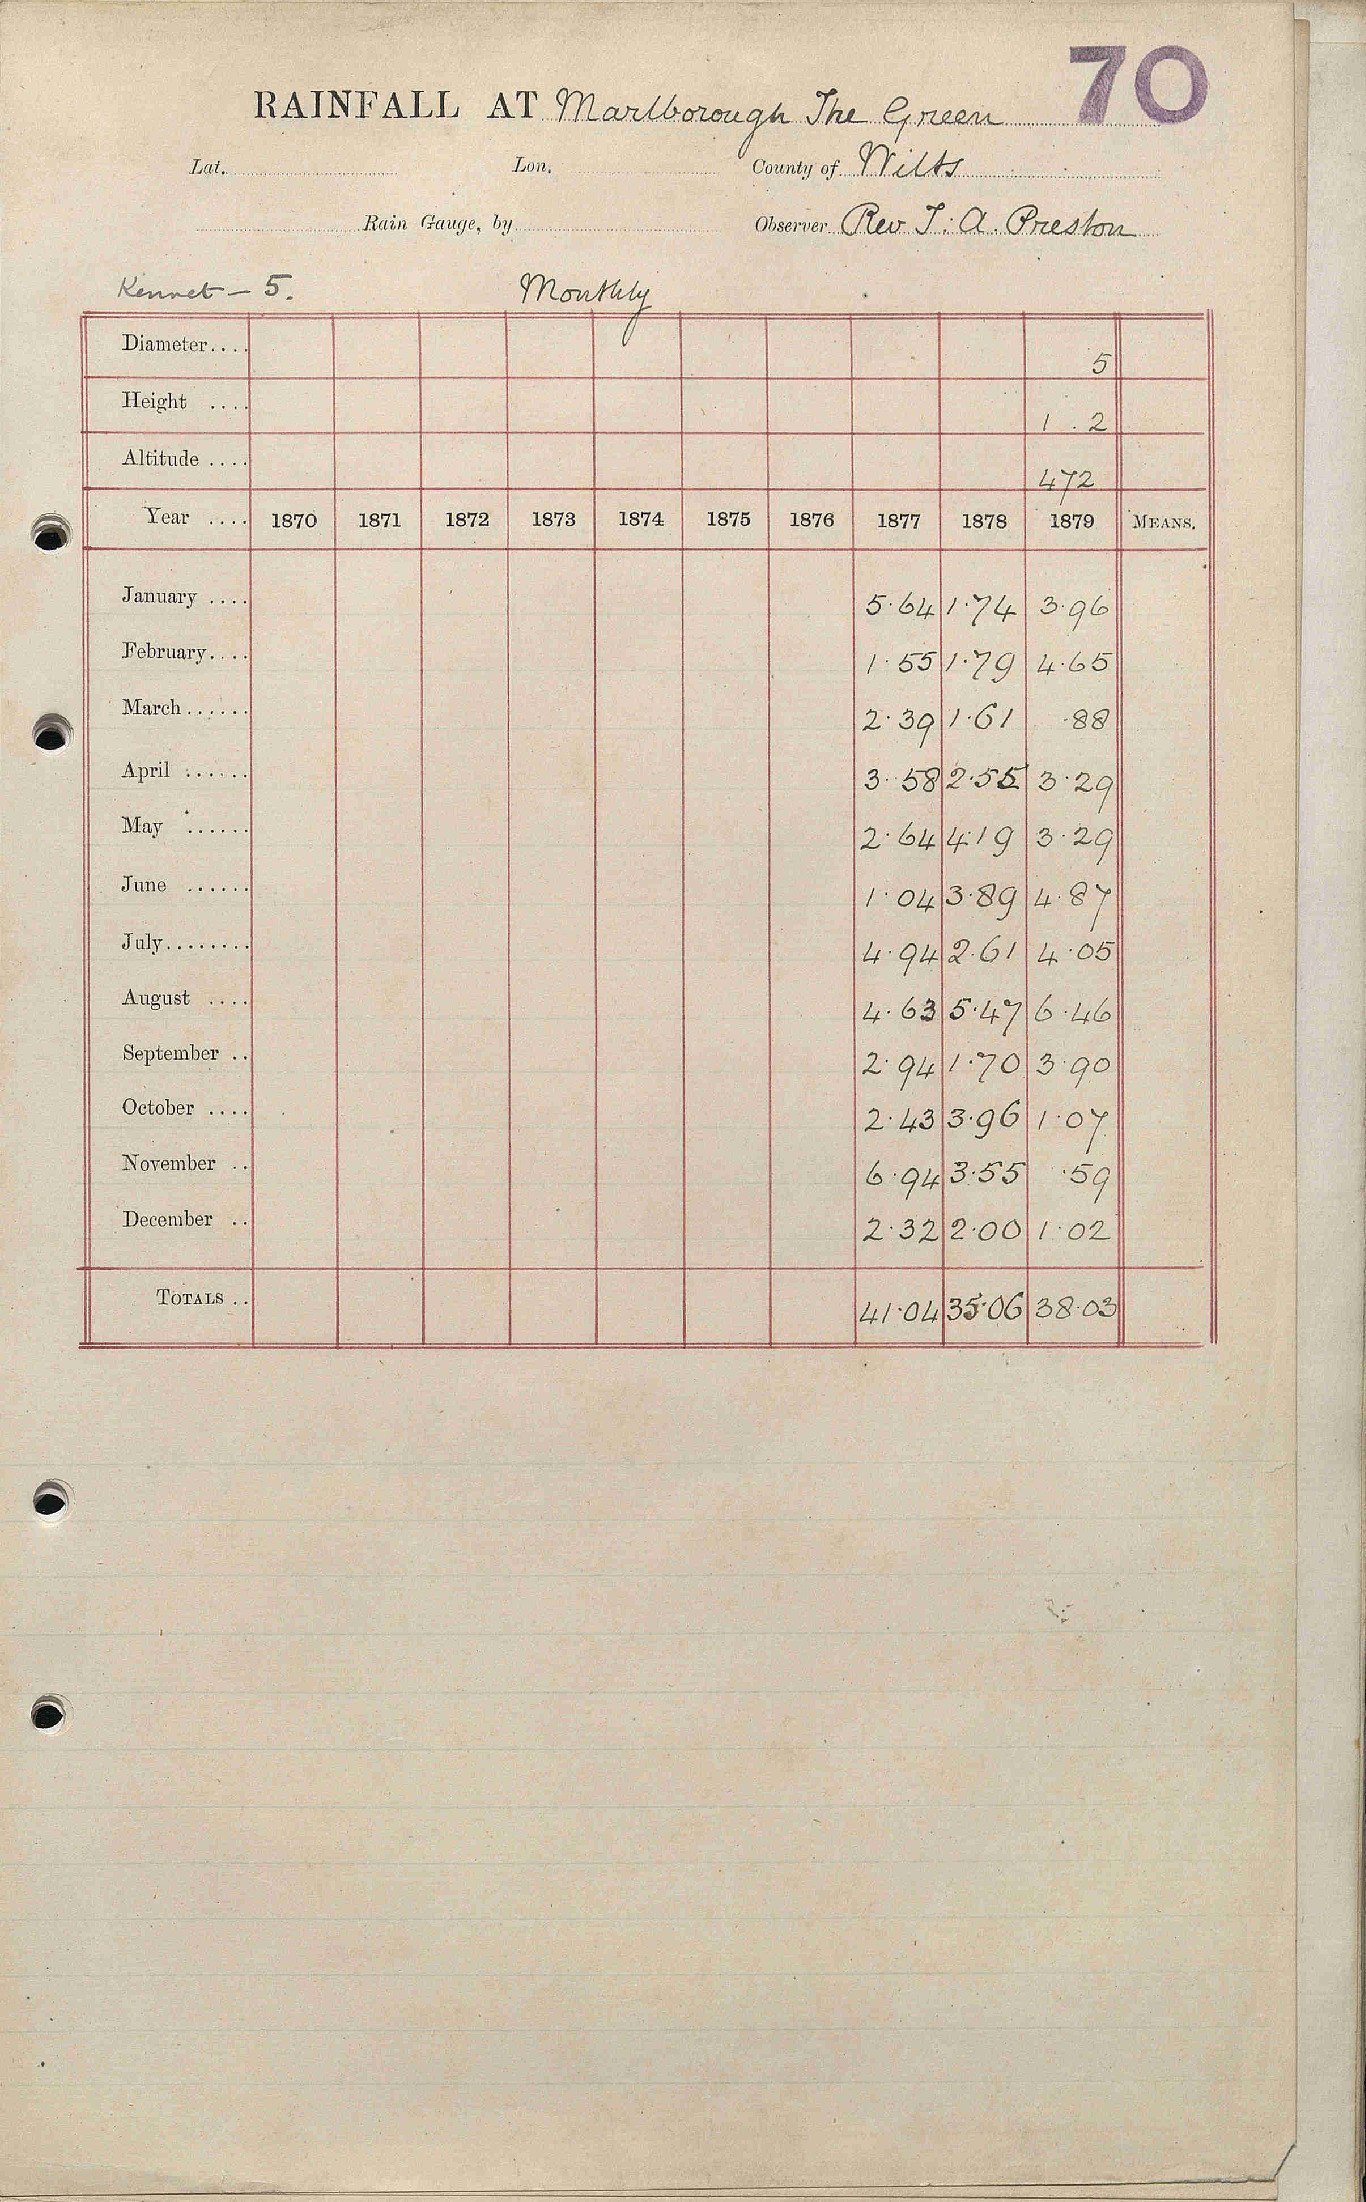 70
RAINFALL AT Marlborough The Green
Lat. Lon. County of Wilts
Rain Gauge, by Observer Rev T. A. Preston
Kennet – 5. Monthly
Diameter.... 5
Height .... 1 . 2
Altitude .... 472
Year .... 1870 1871 1872 1873 1874 1875 1876 1877 1878 1879 MEANS.
January .... 5·64 1·74 3·96
February.... 1·55 1·79 4·65
March...... 2·39 1·61 ·88
April ...... 3·58 2·55 3·29
May ...... 2·64 4·19 3·29
June ...... 1·04 3·89 4·87
July........ 4·94 2·61 4·05
August .... 4·63 5·47 6·46
September .. 2·94 1·70 3·90
October .... 2·43 3·96 1·07
November .. 6·94 3·55 ·59
December .. 2·32 2·00 1·02
TOTALS .. 41·04 35·06 38·03